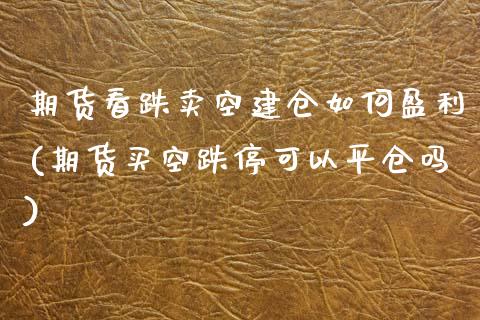 期货看跌卖空建仓如何盈利
(期货买空跌停可以平仓吗
)